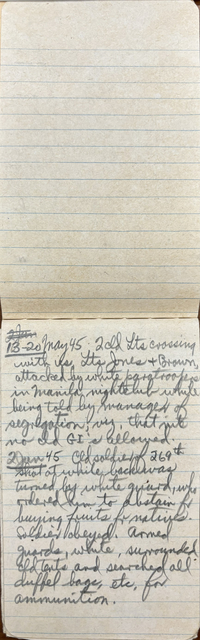 13-20 May 45. 2 cld Lts crossing
with us, Lts Jones & Brown,
attacked by white paratroopers
in Manila nightclub while
being told by manager of
segregation, viz, that
no cld GI's allowed.
2 Jan 45 Cld soldier of 269th
shot at while back was
turned by white guard, who
ordered him to abstain fr
buying fruits fr natives.
Soldier obeyed. Armed
guards, white, surrounded
cld tents and searched all
duffel bags, etc, for
ammunition.